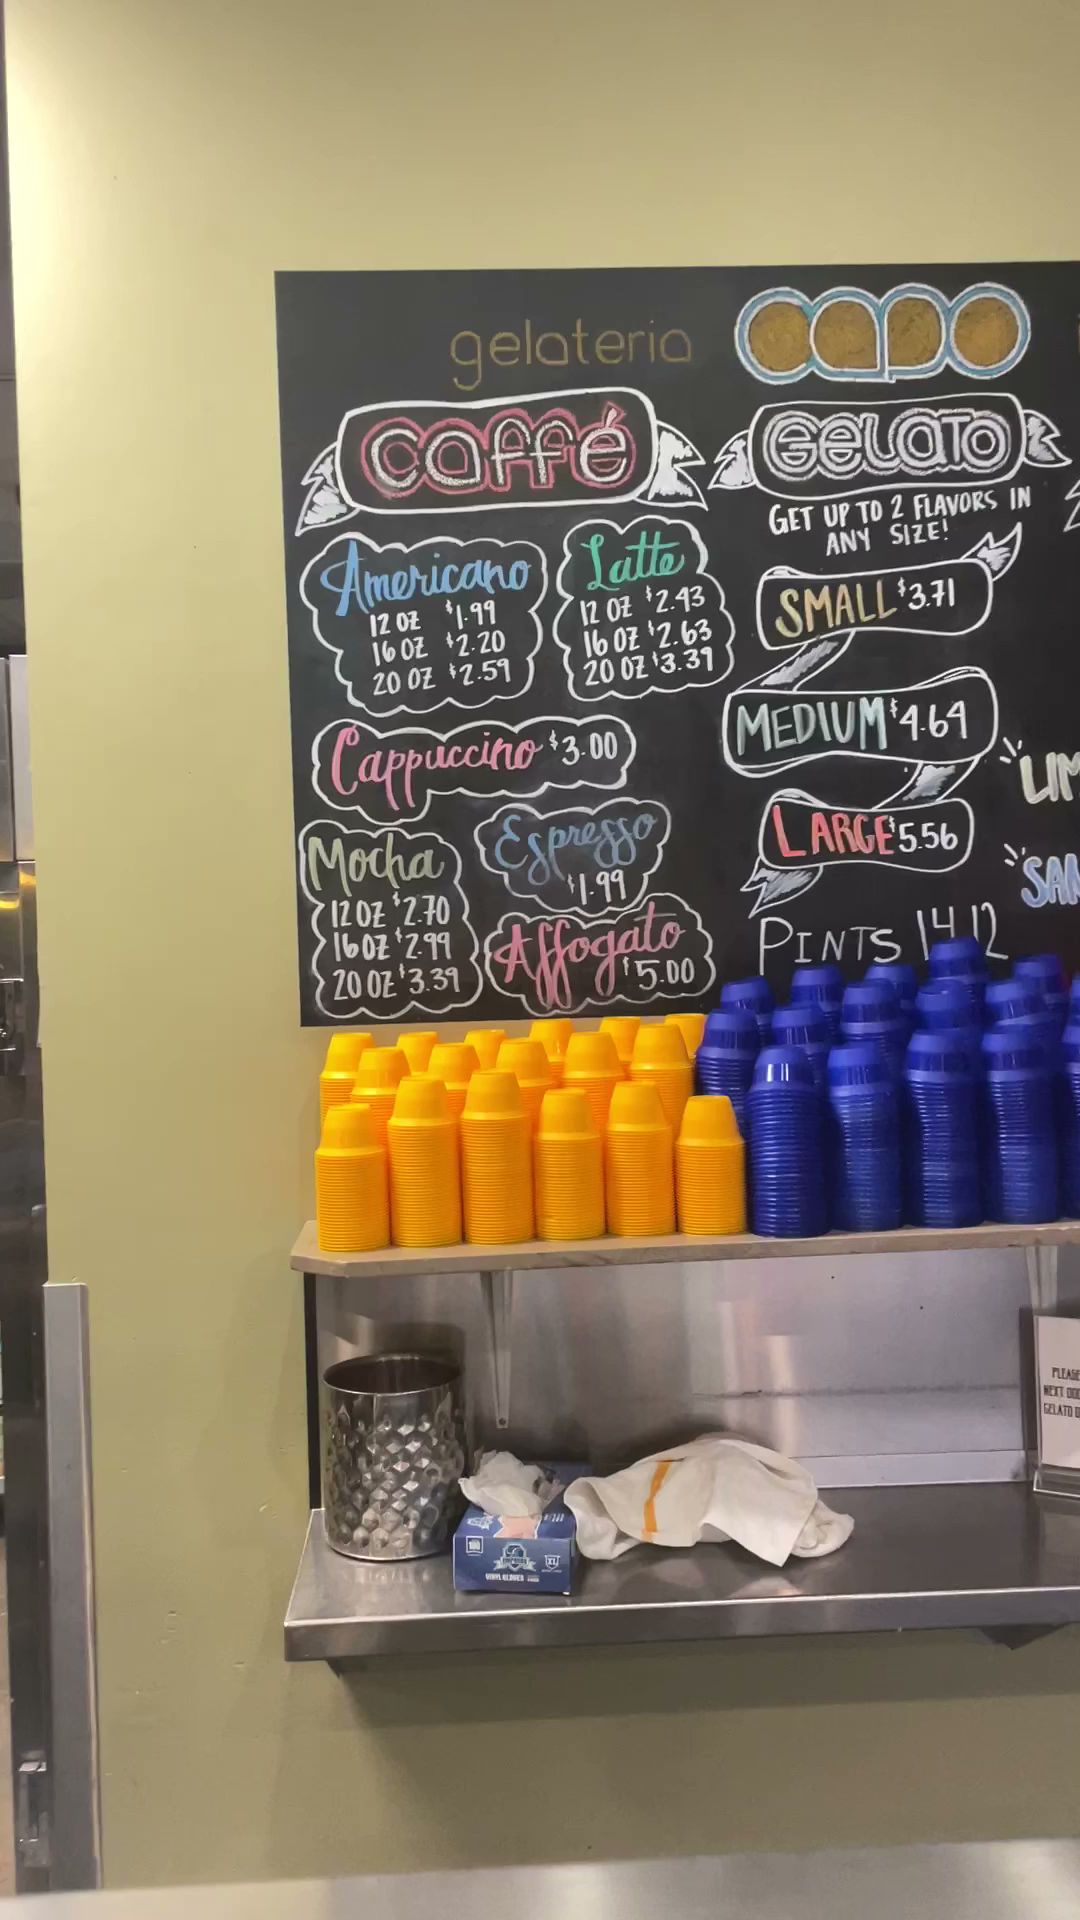 gelateria CAPO
Caffé
Americano
12 OZ $1.99
16 OZ $2.20
20 OZ $2.59
Latte
12 OZ $2.43
16 OZ $2.63
20 OZ $3.39
Cappuccino $3.00
Mocha
12 OZ $2.70
16 OZ $2.99
20 OZ $3.39
Espresso
$1.99
Affogato
$5.00
GELATO
GET UP TO 2 FLAVORS IN
ANY SIZE!
SMALL $3.71
MEDIUM $4.64
LARGE $5.56
PINTS 14.12
LIM
SAN
PLEASE
NEXT DOO
GELATO
100
XL
VINYL GLOVES